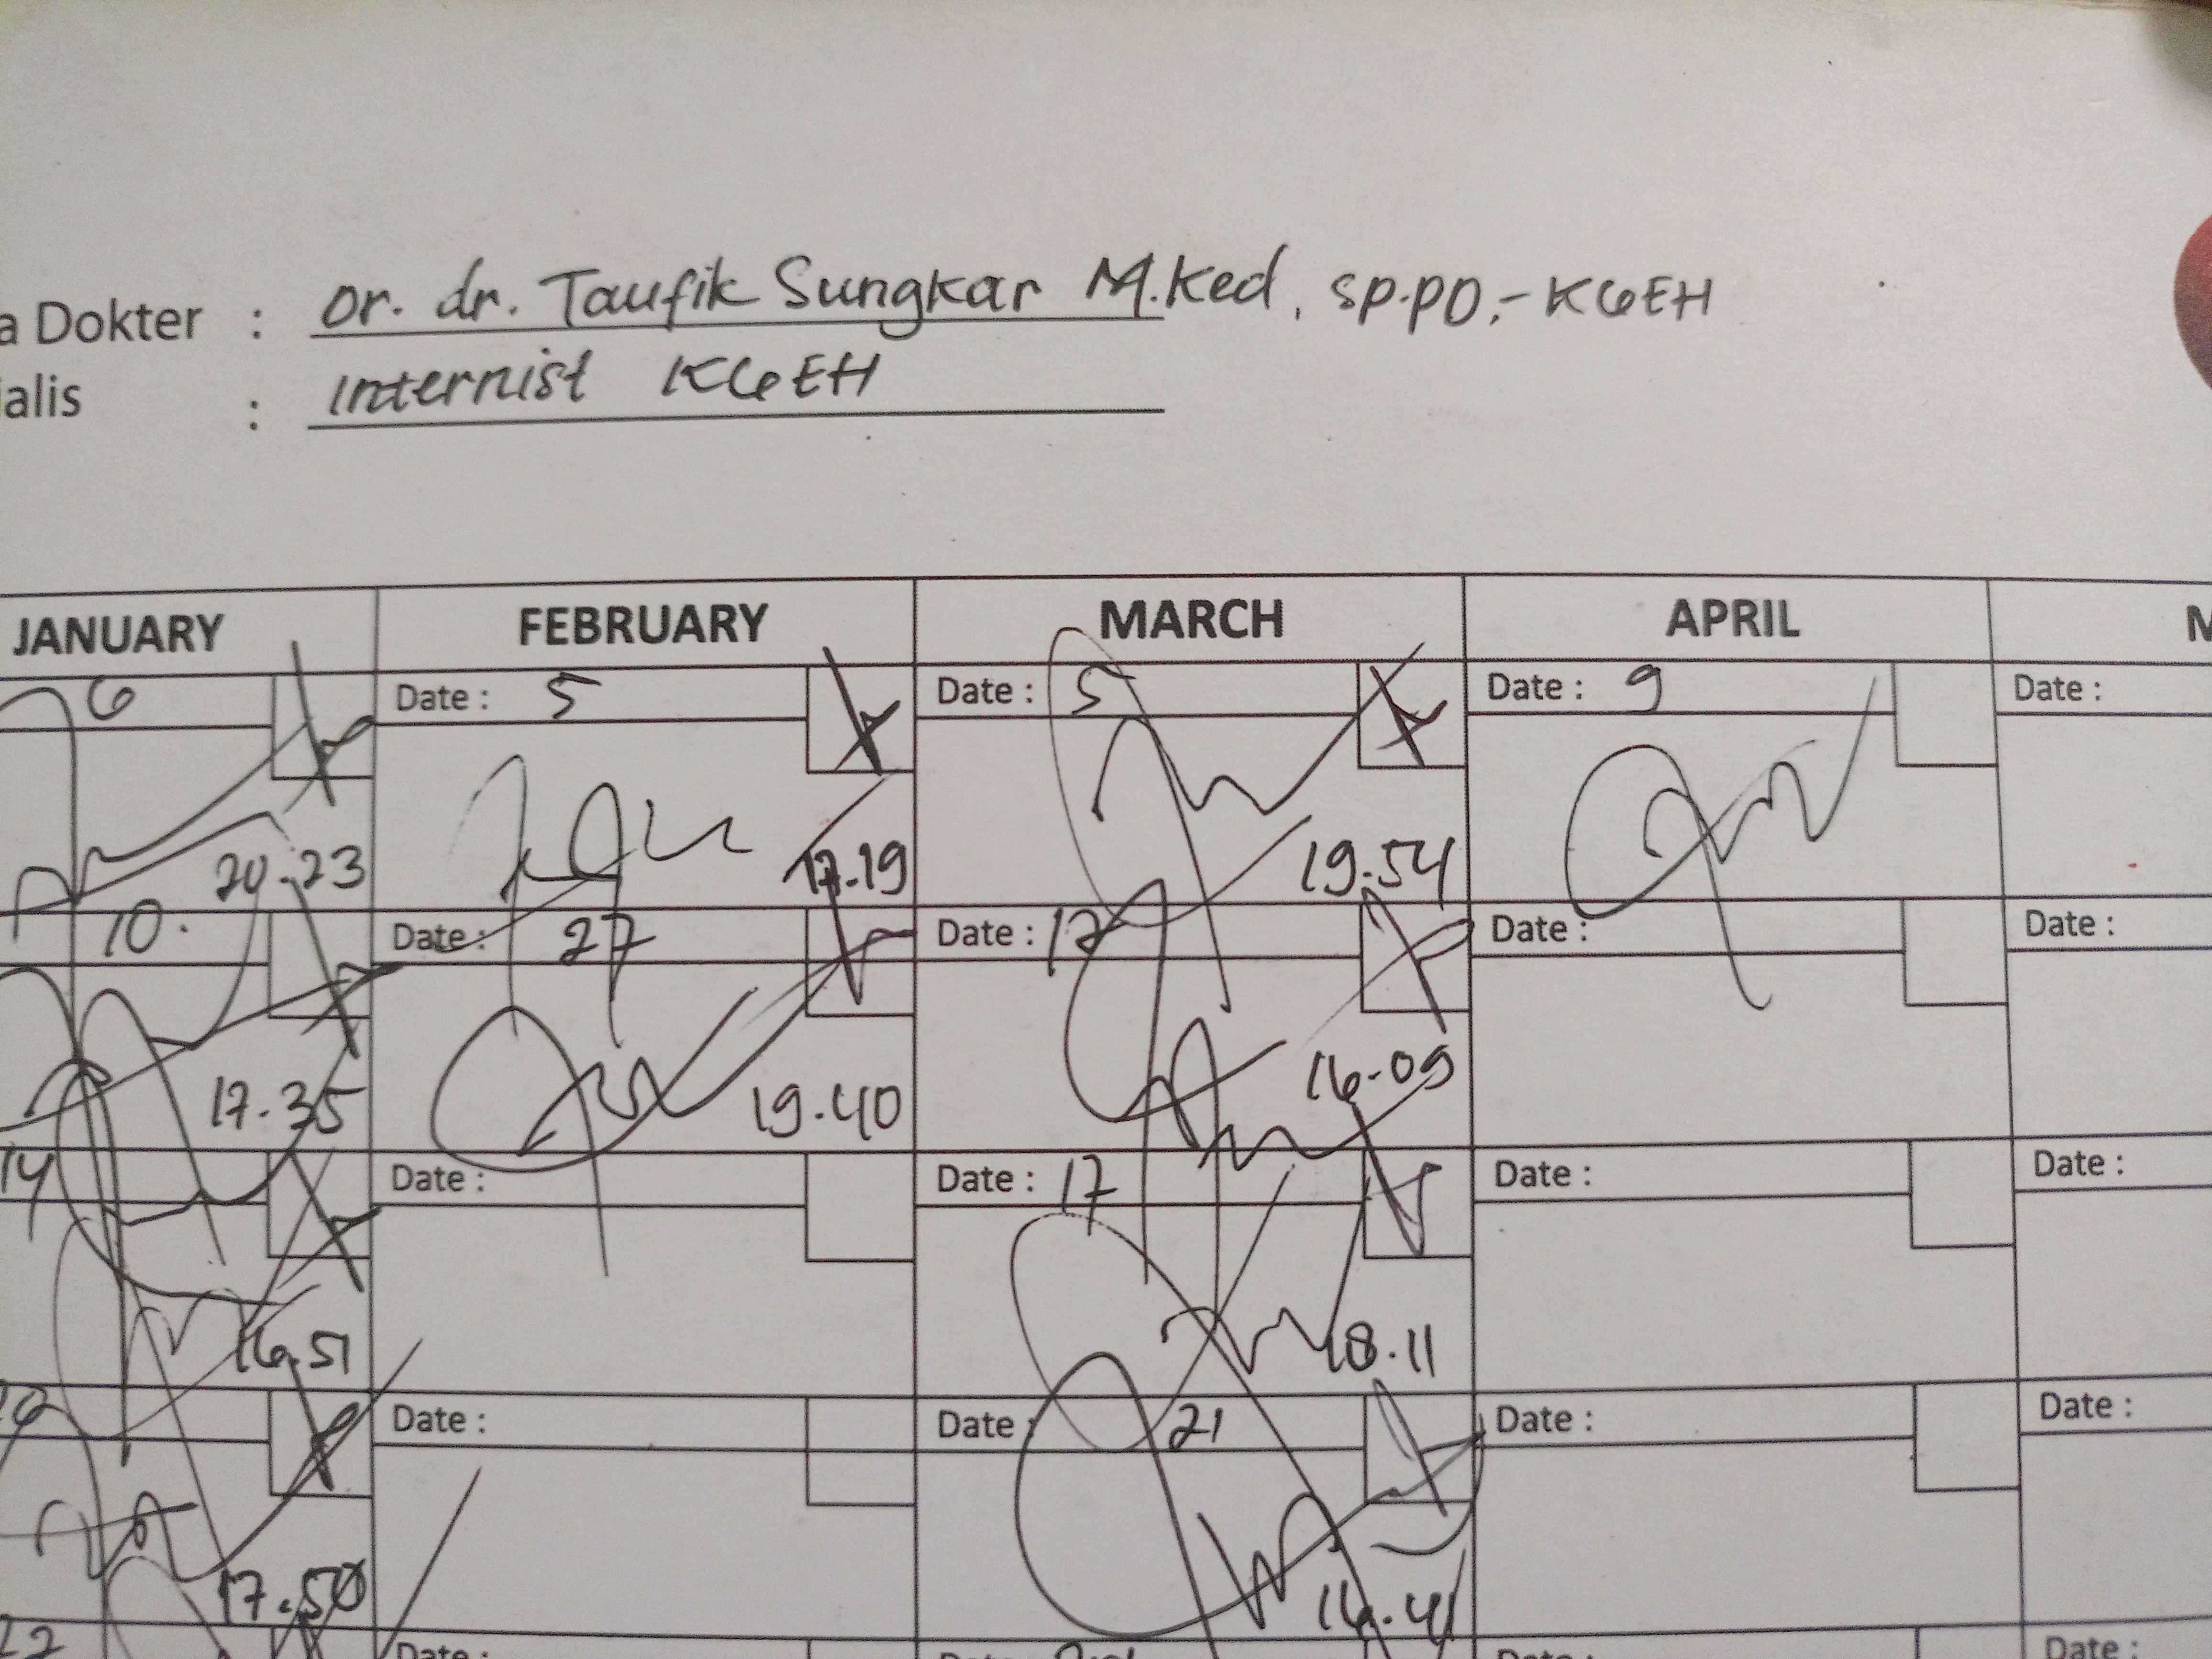 a Dokter : Dr. dr. Taufik Sungkar M.Ked, Sp.PD,-KGEH
ialis : Internist KGEH
JANUARY FEBRUARY MARCH APRIL M
6 Date : 5 Date : 5 Date : 9 Date :
20.23 17.19 19.54
10. Date : 27 Date : 12 Date : Date :
17.35 19.40 16.09
14 Date : Date : 17 Date : Date :
16.51 18.11
Date : Date : 21 Date : Date :
17.50 16.41
Date : Date :